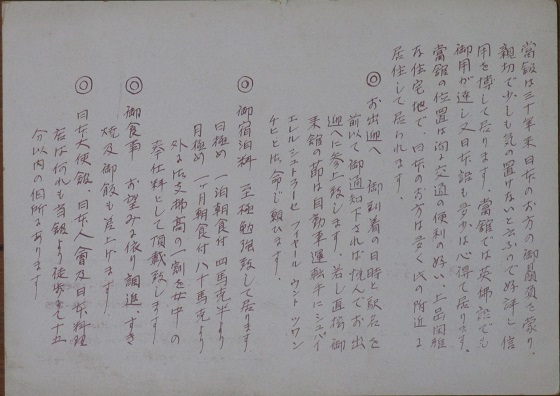 當館は三十年来日本のお方の御贔負を蒙り、
親切で少しも気の置けないと云ふので好評と信
用を博して居ります。當館では英佛語でも
御用が達し又日本語も多少は心得て居ります。
當館の位置は尚ほ交通の便利の好い、上品閑雅
な住宅地で、日本のお方は多く此の附近に
居住して居られます。
◎ お出迎へ 御到着の日時と駅名を
前以て御通知下されば悦んでお出
迎へに参上致します。若し直接御
来館の節は自動車運転手にシュパイ
エレル シュトラーセ フィヤール ウント ツワン
チヒと御命じ願ひます。
◎ 御宿泊料 至極勉強致して居ります
日極め 一泊朝食付 四馬克半より
月極め 一ヶ月朝食付 八十馬克より
外にお支拂高の一割を女中の
奉仕料として頂戴致します
◎ 御食事 お望みに依り調進、すき
焼及御飯も差上げます。
◎ 日本大使館、日本人會及日本料理
店は何れも當館より徒歩で十五
分以内の個所にあります。